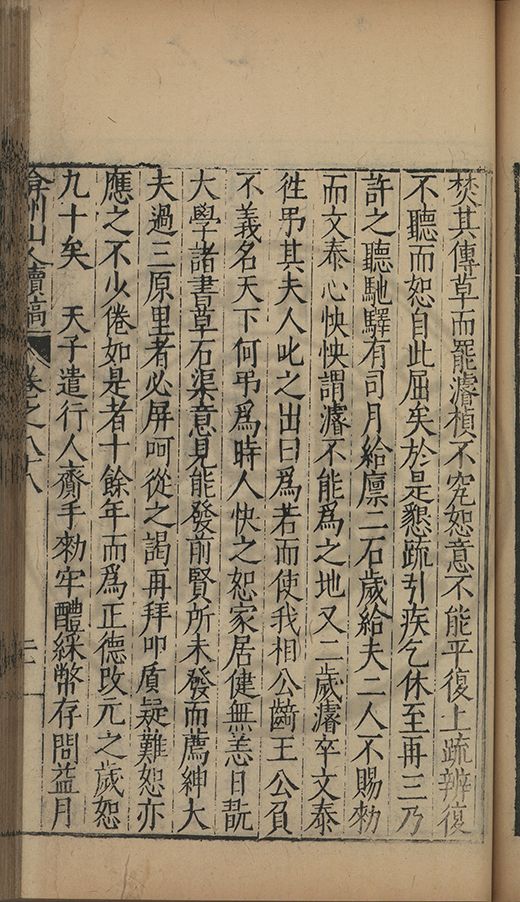 焚其傳草而罷濬楨不究恕意不能平復上疏辨復
不聽而恕自此屈矣於是懇疏引疾乞休至再三乃
許之聽馳驛有司月給廪二石歲給夫二人不賜勑
而文泰心怏怏謂濬不能爲之地又二歲濬卒文泰
徃弔其夫人叱之出曰爲若而使我相公齮王公負
不義名天下何弔爲時人快之恕家居健無恙日翫
大學諸書草石渠意見能發前賢所未發而薦紳大
夫過三原里者必屏呵從之謁再拜叩質疑難恕亦
應之不少倦如是者十餘年而爲正德改元之歲恕
九十矣　天子遣行人齎手勑牢醴綵幣存問益月
弇州山人續稿 卷之八十八